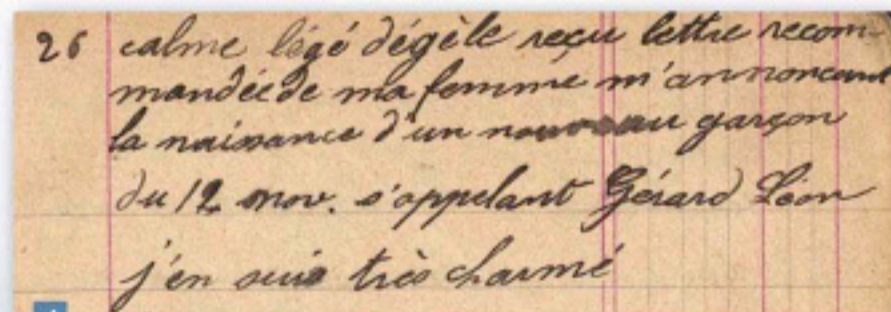 26 calme légé dégèle reçu lettre recom-
mandée de ma femme m'annoncant
la naissance d'un nouveau garçon
du 12 nov. s'appelant Gérard Léon
j'en suis très charmé